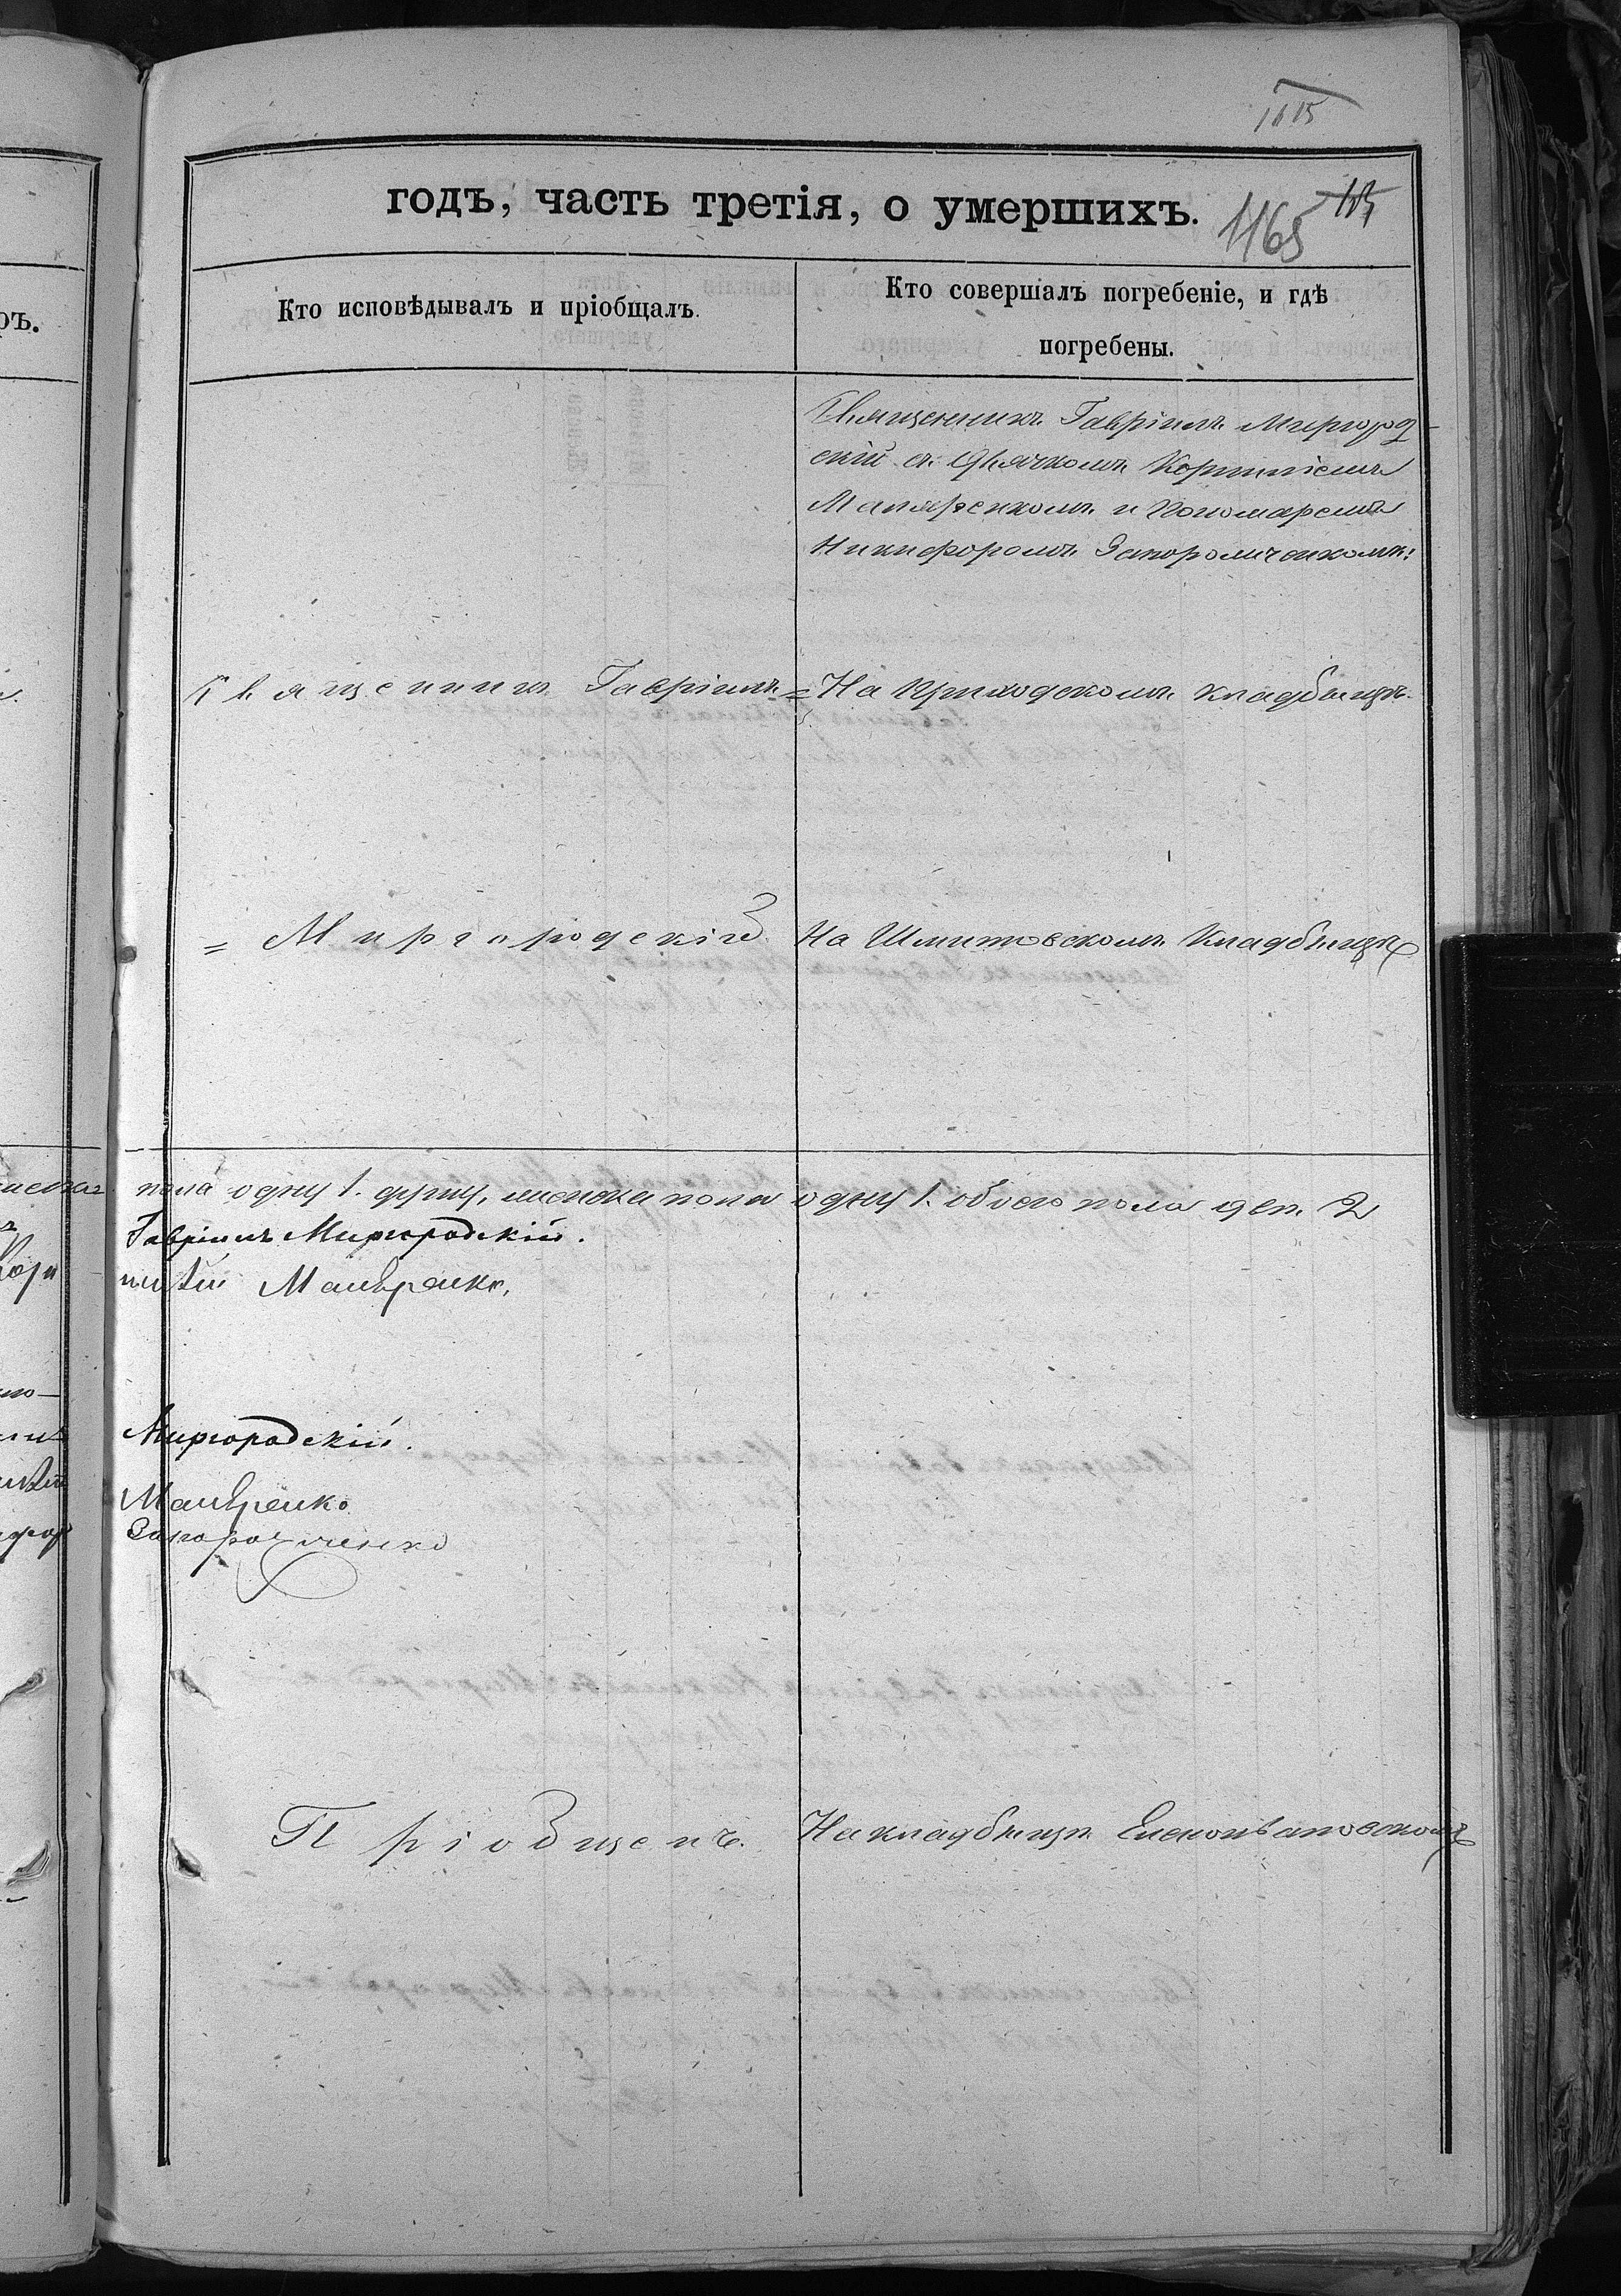 годъ, часть третія, о умершихъ.
1165
Кто исповѣдывалъ и пріобщалъ.
Кто совершалъ погребеніе, и гдѣ
погребены.
Священникъ Гавріилъ Миргород-
скій съ Дьячкомъ Корниліемъ
и Пономаремъ
Никифоромъ Запорожченкомъ:
Священникъ Гавріилъ =
На Приходскомъ кладбищѣ.
= Миргородскій
На Шмитовскомъ Кладбищѣ
пола одну 1. душу, женска пола одну 1. обоего пола двѣ 2
Гавріилъ Миргородскій.
Миргородскій.
Запорожченко
Пріобщенъ.
На кладбищѣ